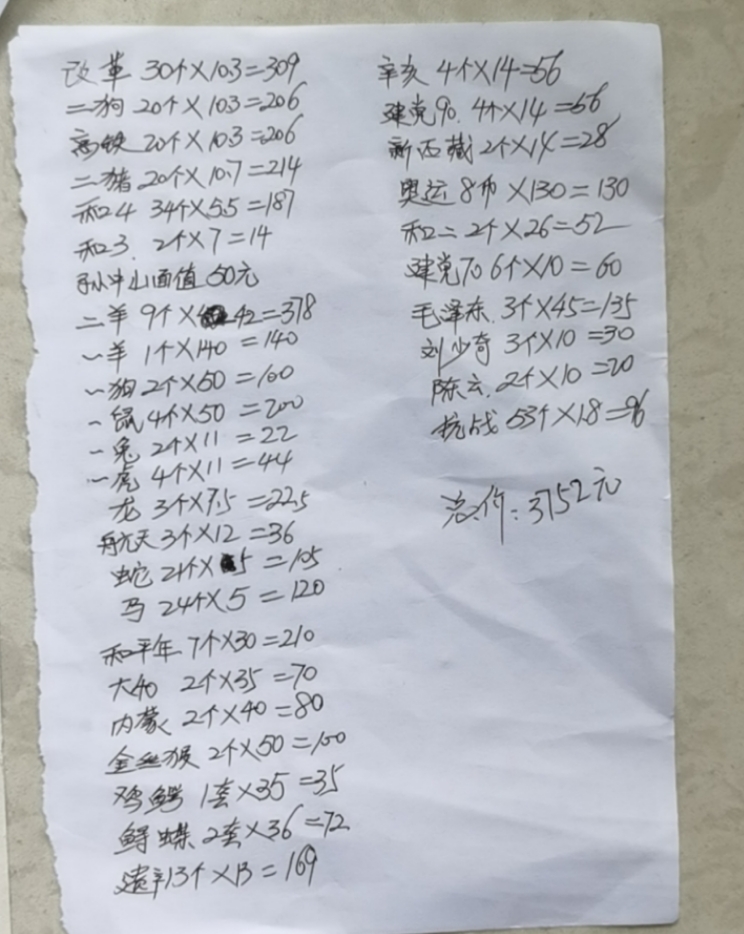 改革 30个×10.3=309
二狗 20个×10.3=206
高铁 20个×10.3=206
二猪 20个×10.7=214
和24 34个×5.5=187
和3. 2个×7=14
孙中山面值 50元
二羊 9个×42=378
一羊 1个×140=140
一狗 2个×50=100
一鼠 4个×50=200
一兔 2个×11=22
一虎 4个×11=44
龙 3个×7.5=22.5
航天 3个×12=36
蛇 21个×5=105
马 24个×5=120
和平年 7个×30=210
大40 2个×35=70
内蒙 2个×40=80
金丝猴 2个×50=100
鸡鳄 1套×35=35
鲟蝶 2套×36=72
遗辛13个×13=169
辛亥 4个×14=56
建党90. 4个×14=56
新西藏 2个×14=28
奥运 8币×130=130
和二 2个×26=52
建党70 6个×10=60
毛泽东. 3个×45=135
刘少奇 3个×10=30
陈云. 2个×10=20
抗战 53个×1.8=96
总价:3752元